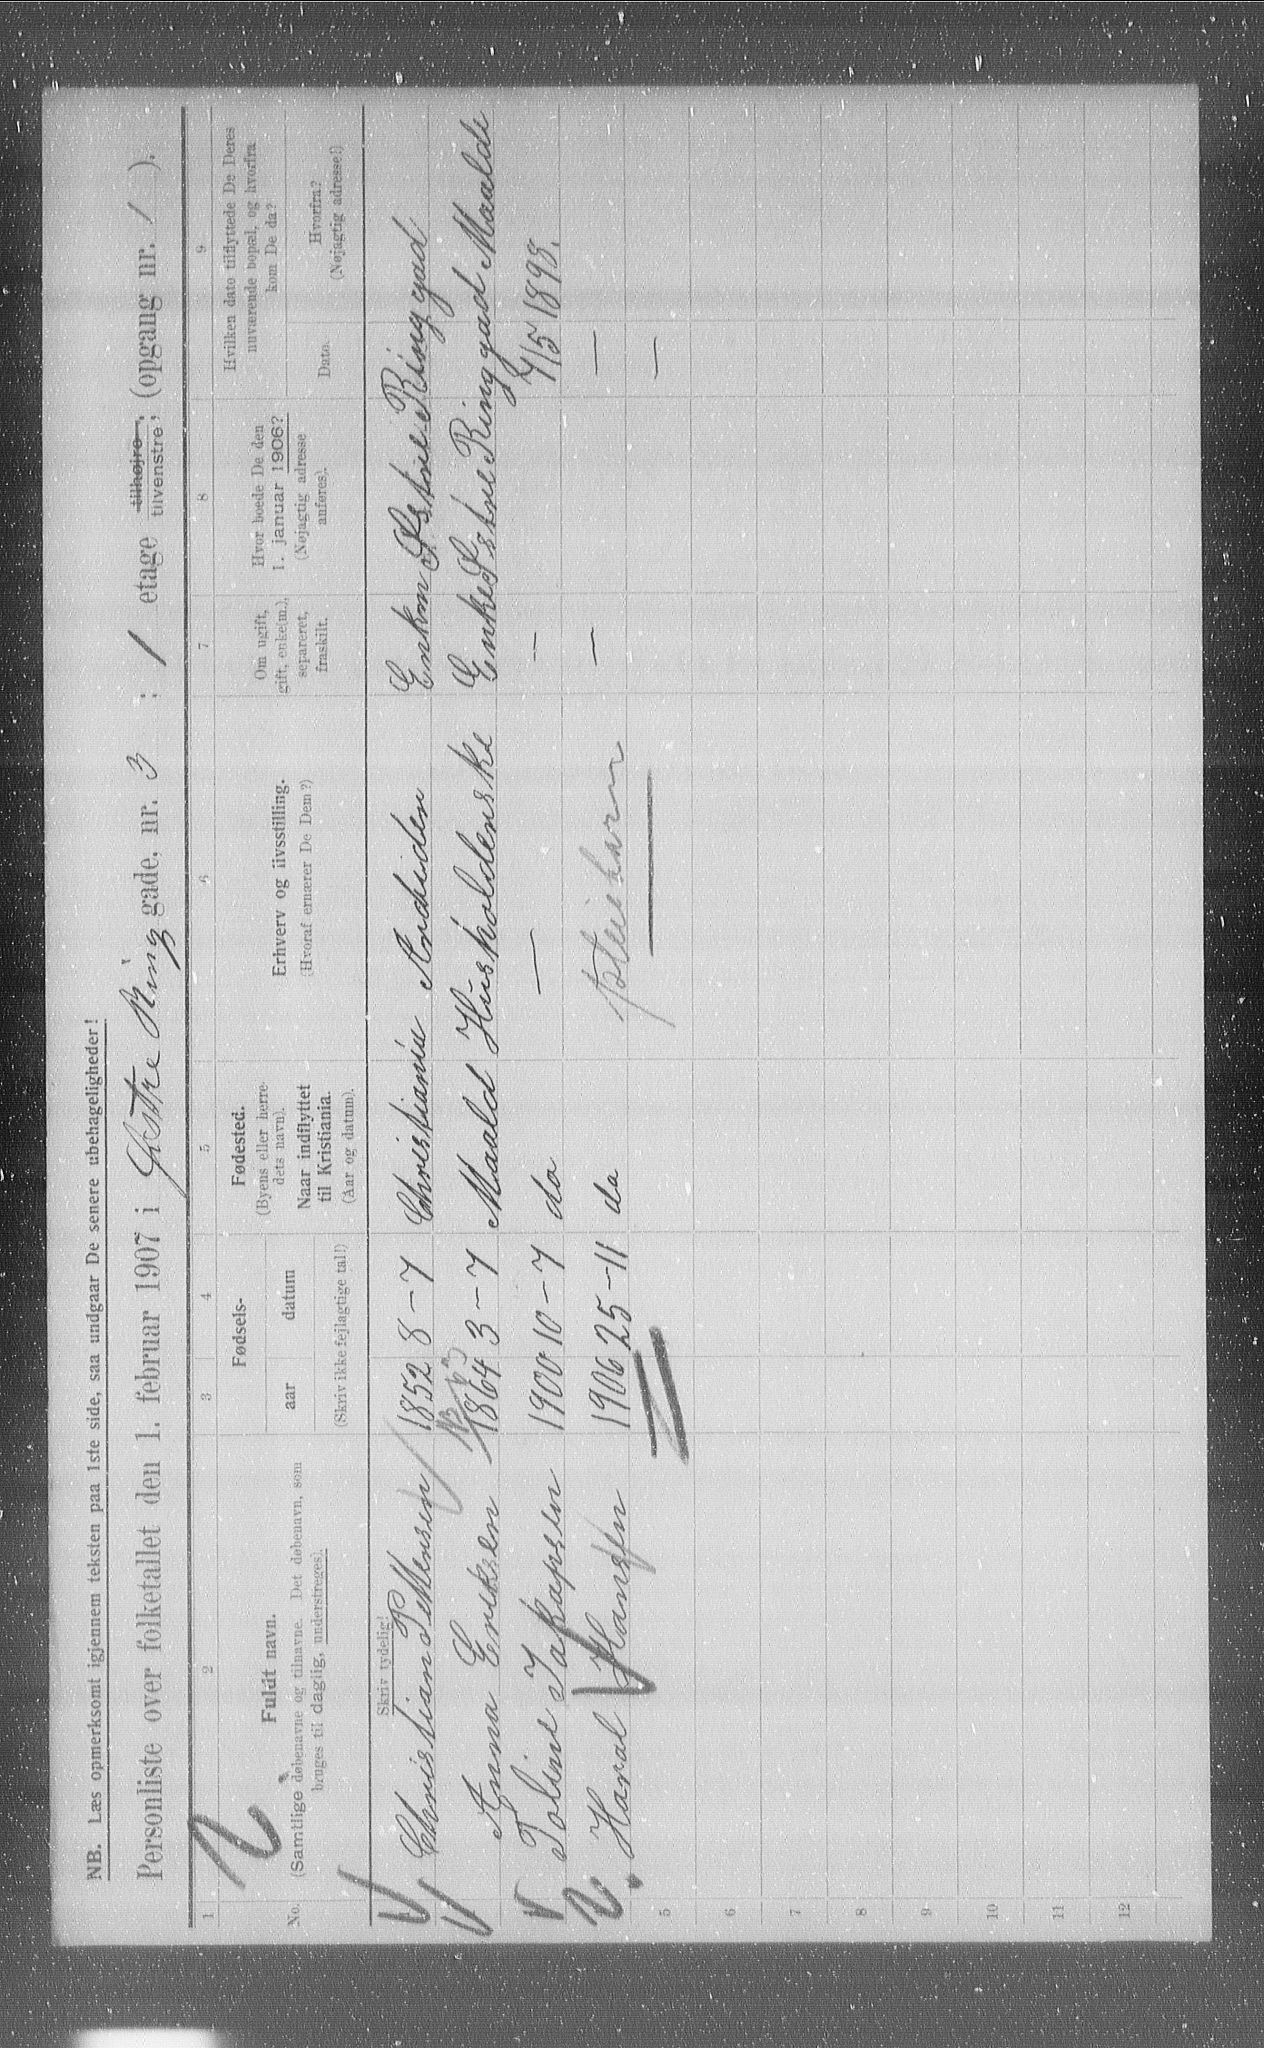 NB. Læs opmerksomt igjennem teksten paa 1ste side, saa undgaar De senere ubehageligheder!
Personliste over folketallet den 1. februar 1907 i Østre Ring gade, nr. 3 : 1 etage tilhøjre, tilvenstre, (opgang nr. 1 ).
1 2 3 4 5 6 7 8 9
No.
Fuldt navn.
(Samtlige døbenavne og tilnavne. Det døbenavn, som
bruges til daglig, understreges).
Fødsels-
aar datum
(Skriv ikke fejlagtige tal!)
Fødested.
(Byens eller herre-
dets navn).
Naar indflyttet
til Kristiania.
(Aar og datum).
Erhverv og livsstilling.
(Hvoraf ernærer De Dem?)
Om ugift,
gift, enke(m.),
separeret,
fraskilt.
Hvor boede De den
1. januar 1906?
(Nøjagtig adresse
anføres).
Hvilken dato tilflyttede De Deres
nuværende bopæl, og hvorfra
kom De da?
Dato.
Hvorfra?
(Nøjagtig adresse!)
Skriv tydelig!
Christian Pettersen 1852 8-7 Christiania Enkm Østre Ring gad
Anna Eriksen 1864 3-7 Maald Enke Østre Ring gad Maalde
Toline Jakopsen 1900 10-7 do — — 7/5 1898.
Haral Hansen 1906 25-11 do pleiebarn — —
—
5
6
7
8
9
10
11
12